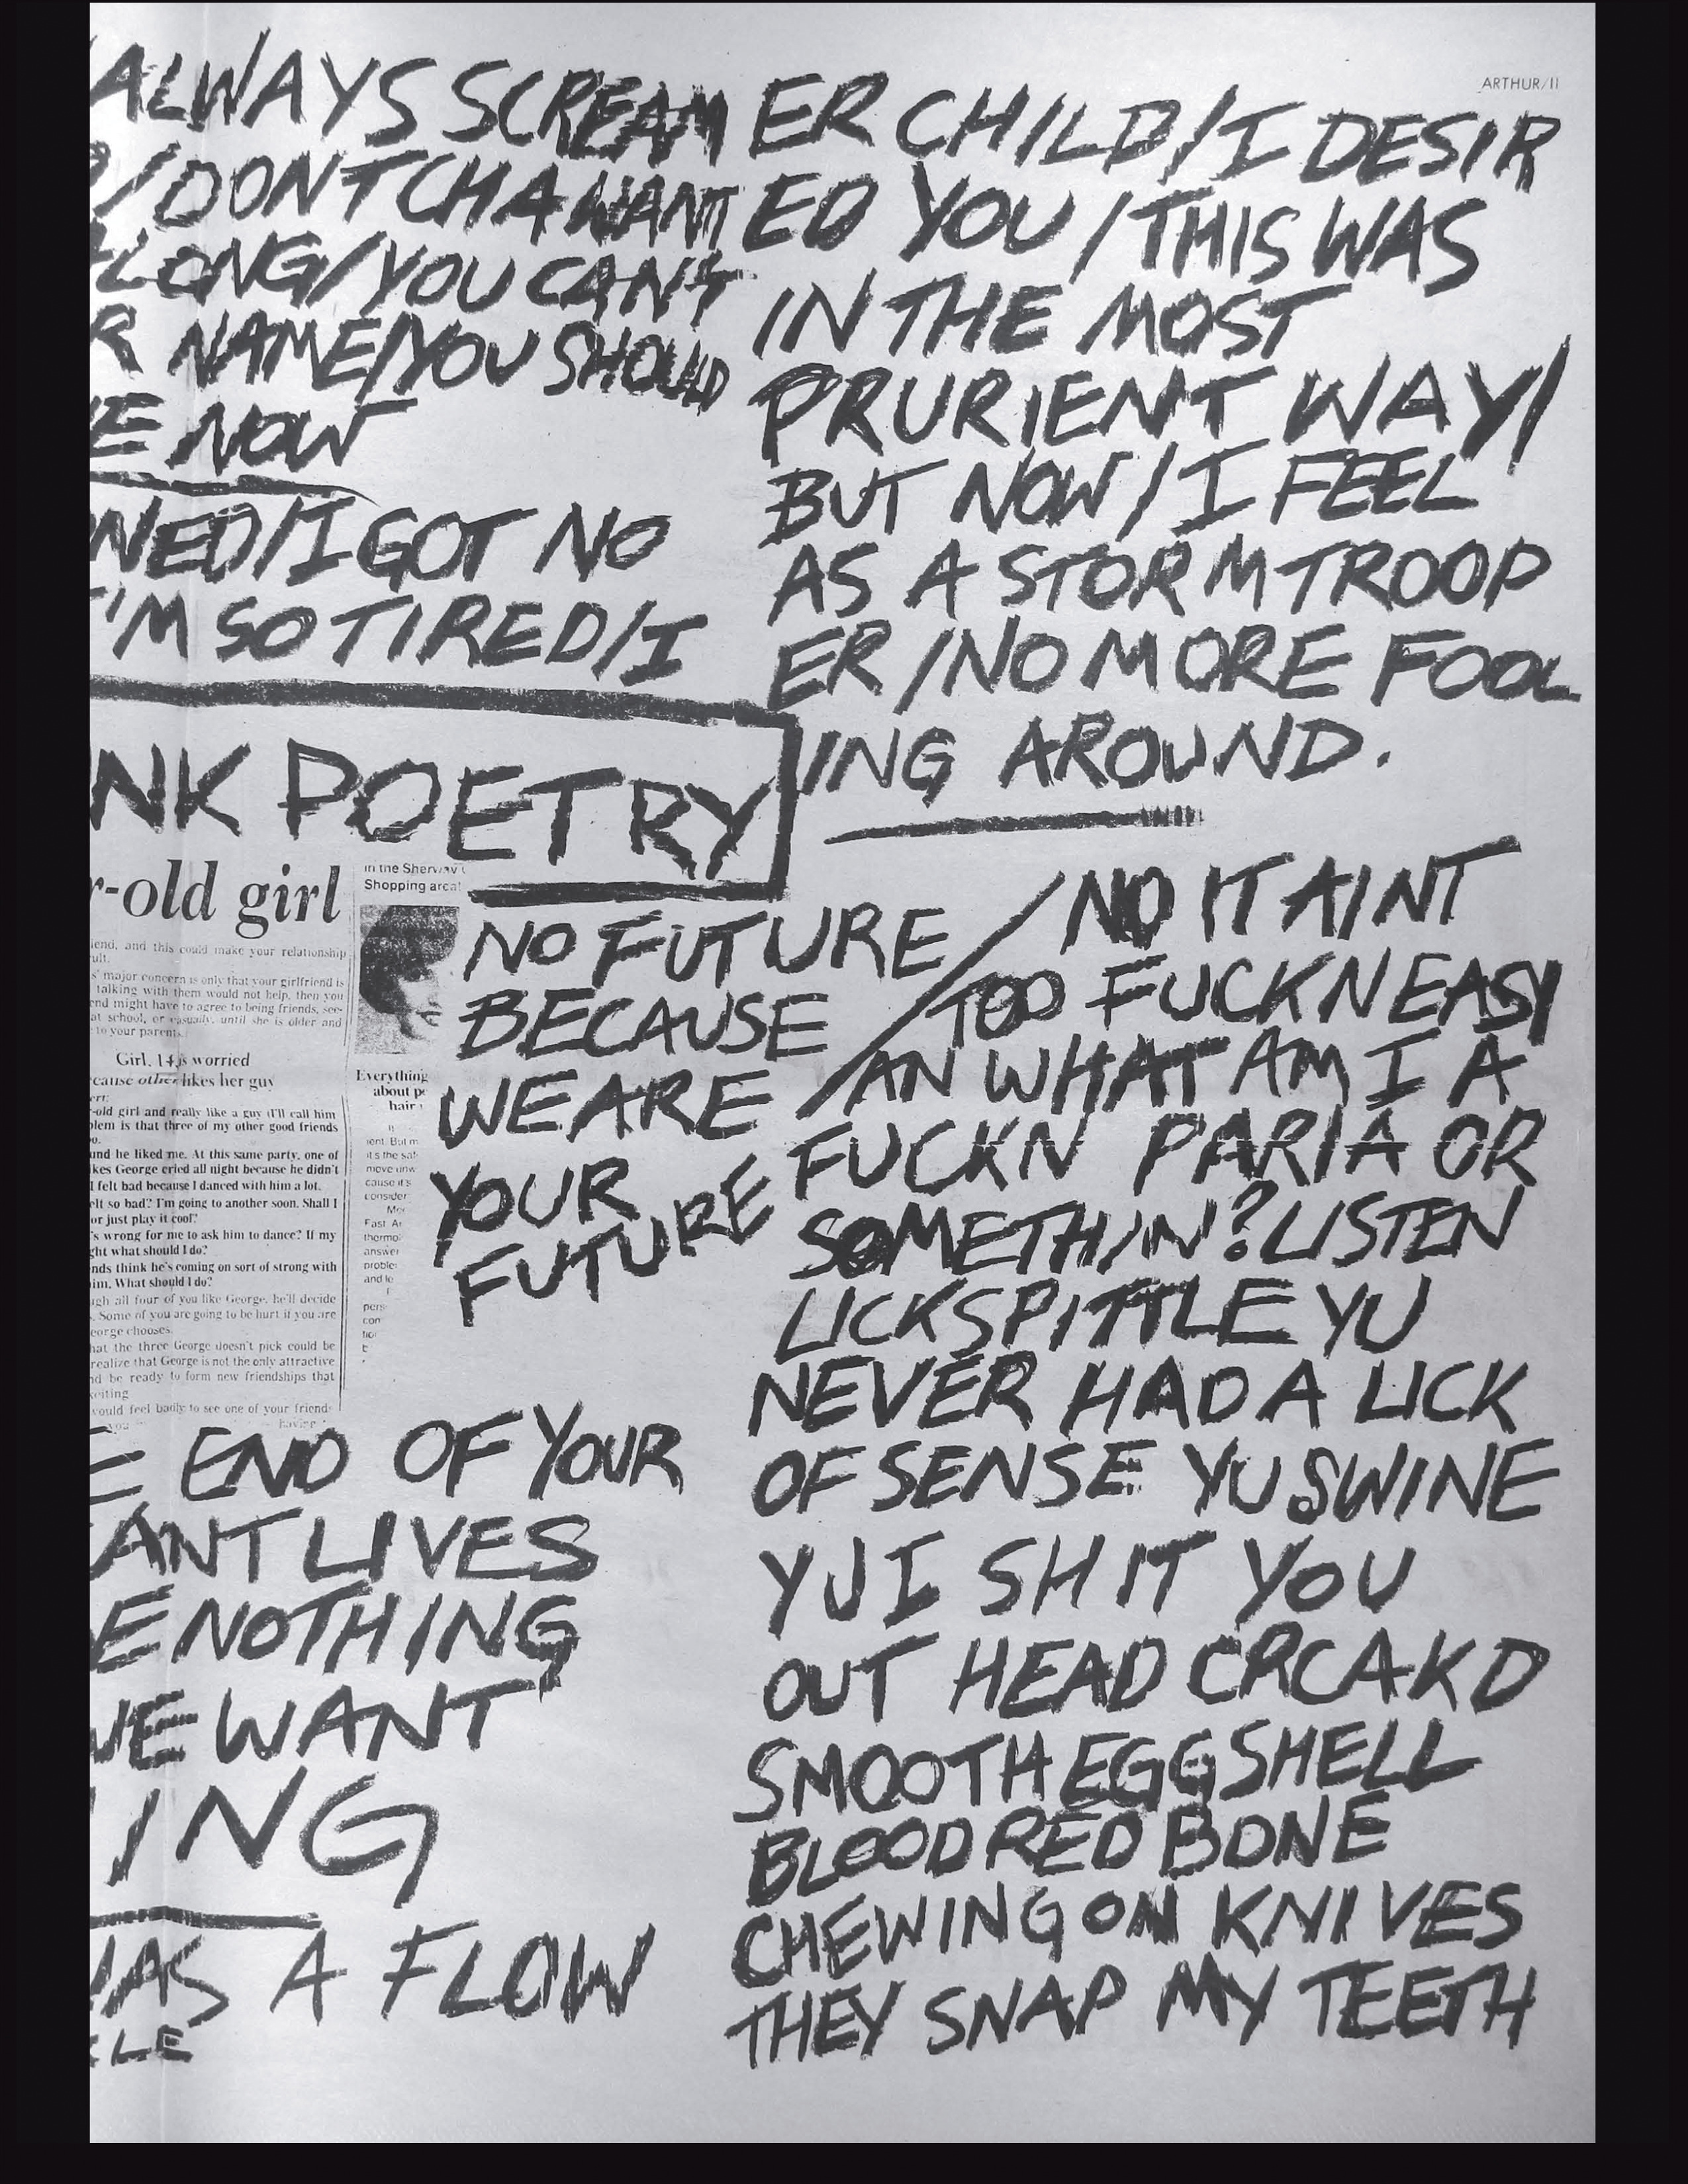 ARTHUR/11
ALWAYS SCREAM
/DONTCHA WANT
LONG/YOU CAN'T
R NAME/YOU SHOULD
E NOW
NED/I GOT NO
I'M SO TIRED/I
NK POETRY
r-old girl
iend, and this could make your relationship
ult.
s' major concern is only that your girlfriend is
talking with them would not help, then you
end might have to agree to being friends, see-
at school, or casually, until she is older and
to your parents.
Girl, 14, is worried
cause other likes her guy
ert:
-old girl and really like a guy (I'll call him
blem is that three of my other good friends
o.
und he liked me. At this same party, one of
kes George cried all night because he didn't
I felt bad because I danced with him a lot.
elt so bad? I'm going to another soon. Shall I
or just play it cool?
's wrong for me to ask him to dance? If my
ght what should I do?
nds think he's coming on sort of strong with
im. What should I do?
ugh all four of you like George, he'll decide
. Some of you are going to be hurt if you are
eorge chooses.
hat the three George doesn't pick could be
realize that George is not the only attractive
nd be ready to form new friendships that
xciting
would feel badly to see one of your friends
you having
in the Sherway
Shopping area
Everything
about pe
hair
ient. But m
it's the sa
move unw
cause it's
consider
Fast A
thermo
answer
proble
and le
pers
con
NO FUTURE
BECAUSE
WE ARE
YOUR
FUTURE
E END OF YOUR
ANT LIVES
E NOTHING
WE WANT
ING
WAS A FLOW
ELE
ER CHILD/I DESIR
ED YOU/THIS WAS
IN THE MOST
PRURIENT WAY/
BUT NOW/I FEEL
AS A STORMTROOP
ER/NO MORE FOOL
ING AROUND.
/NO IT AINT
TOO FUCKN EASY
AN WHAT AM I A
FUCKN PARIA OR
SOMETHIN? LISTEN
LICKSPITTLE YU
NEVER HAD A LICK
OF SENSE YU SWINE
YU I SHIT YOU
OUT HEAD CRCAKD
SMOOTH EGGSHELL
BLOOD RED BONE
CHEWING ON KNIVES
THEY SNAP MY TEETH